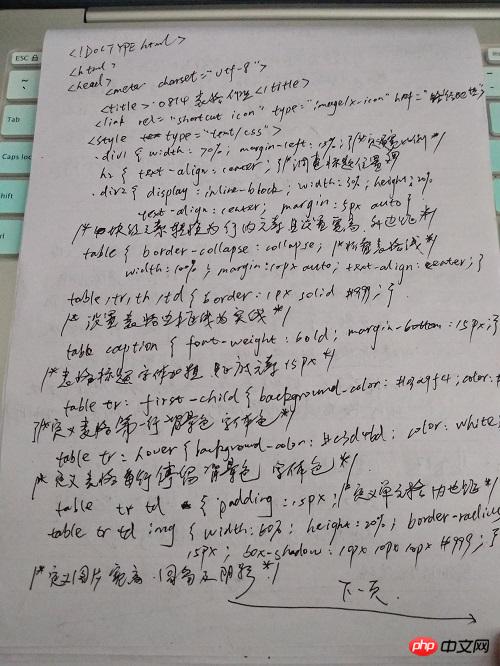 <!DOCTYPE html>
<html>
<head>
<meta charset="utf-8">
<title>0814表格作业<title>
<link rel="shortcut icon" type="image/x-icon" href="
<style type="text/css">
.div1 { width: 70%; margin-left: 15%; } /*
h2 { text-align: center; } /*调整标题位置
.div2 { display: inline-block; width: 30%; height: 20%
text-align: center; margin: 5px auto }
/*由块级元素转换为行内元素且设置宽高,外边距*/
table { border-collapse: collapse; /*折叠表格线*/
width: 100%; margin: 10px auto; text-align: center; }
table, tr, th, td { border: 1px solid #999; }
/* 设置表格边框线为实线*/
table caption { font-weight: bold; margin-bottom: 15px; }
/*表格标题字体加粗 15px */
table tr: first-child { background-color: color:
}/*定义表格第一行背景色 字体色*/
table tr: hover { background-color: #c3d4bd; color: white;
/*定义表格每行停留背景色 字体色*/
table tr td { padding: 15px; /*定义单元格内边距*/
table tr td img { width: 60%; height: 20%; border-radius
15px; box-shadow: 10px 10px 10px #999; }
/*定义图片宽高.圆角及阴影*/
下一页.
php中文网
esc
Tab
Caps lock
Shift
Ctrl